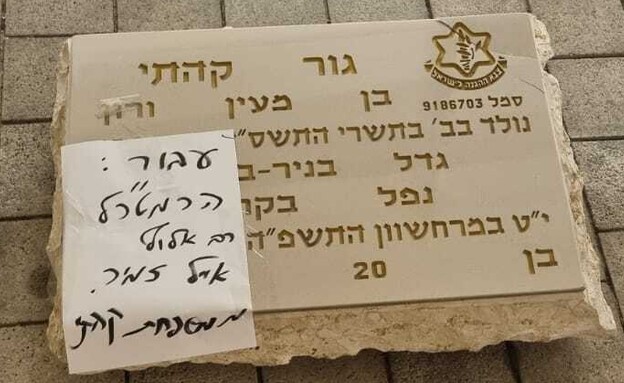 צבא ההגנה לישראל
גור קהתי
סמל 9186703
בן מעין
נולד בב' בתשרי התשס"
גדל בניר-ב
נפל
י"ט במרחשוון התשפ"ה
בן 20
עבור :
הרמטכ"ל
רב אלוף
אייל זמיר.
ממשפחת קהתי